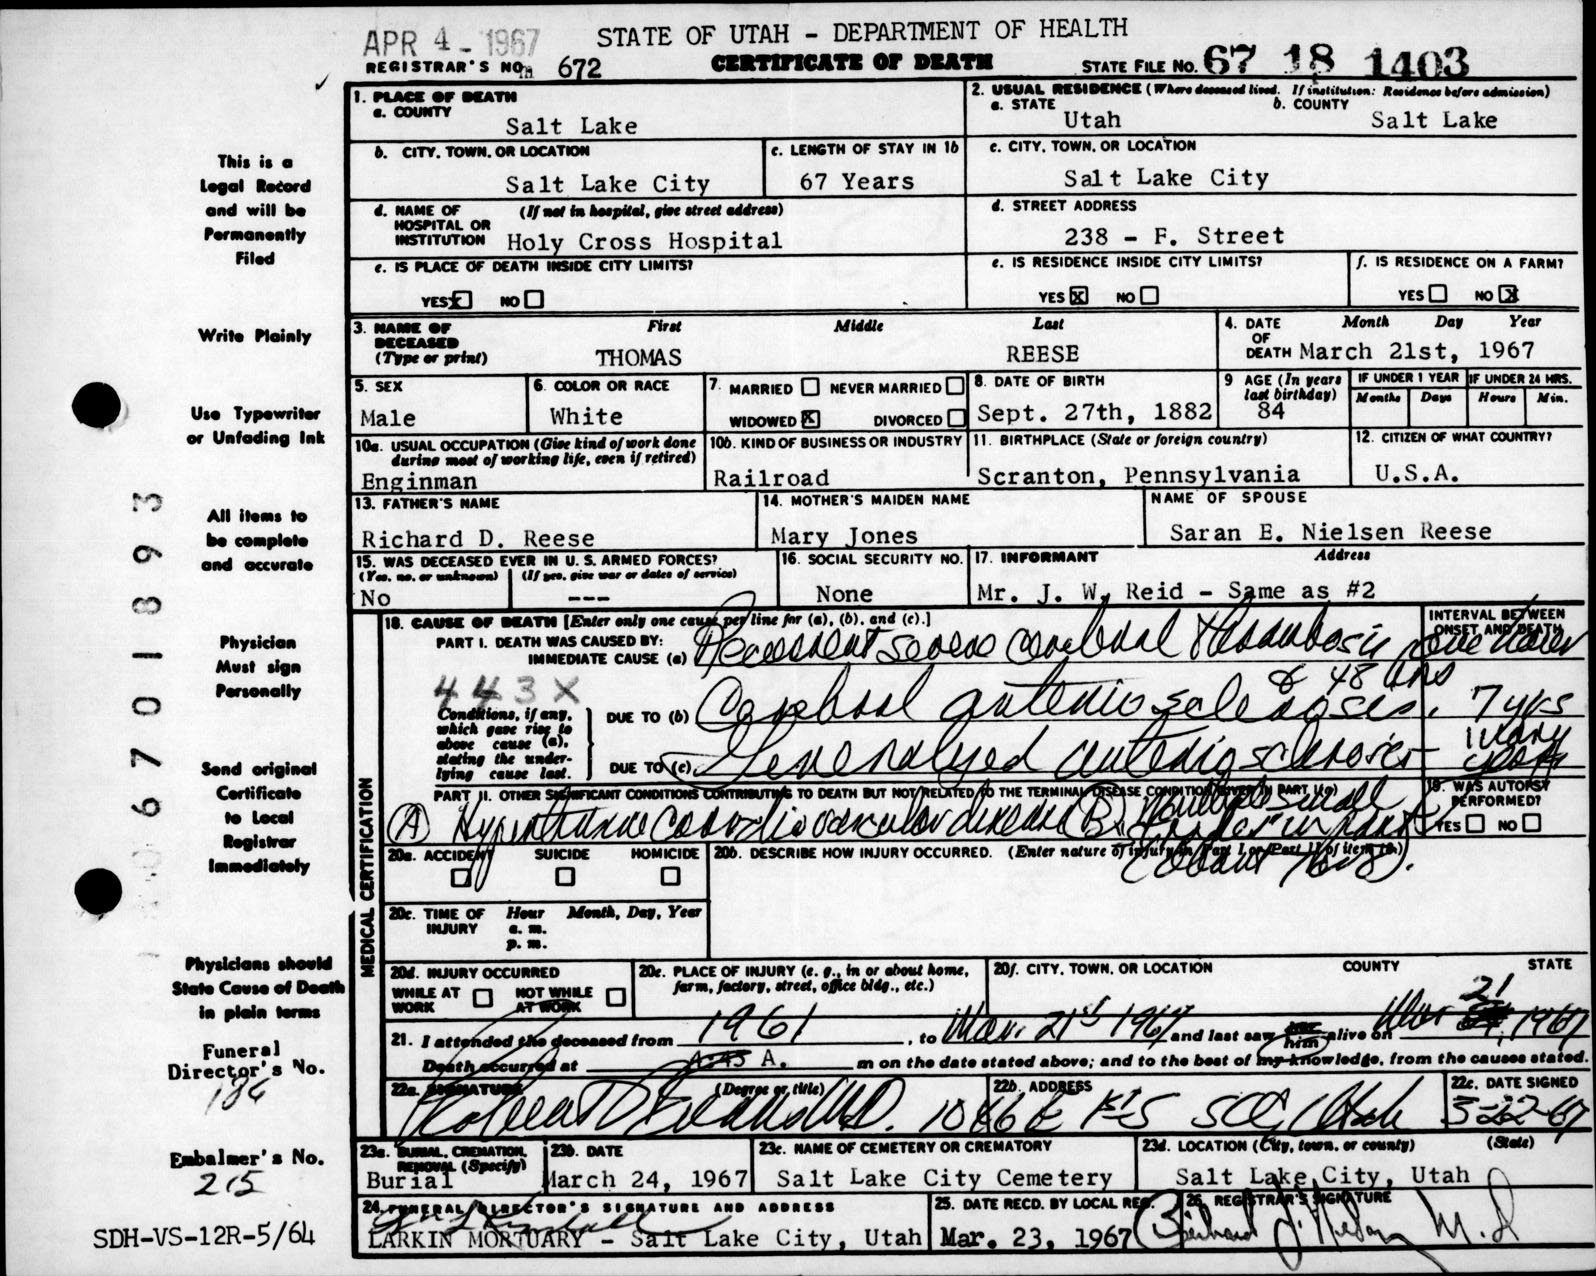 APR 4 - 1967
STATE OF UTAH - DEPARTMENT OF HEALTH
REGISTRAR'S NO. 672
CERTIFICATE OF DEATH
STATE FILE NO. 67 18 1403
1. PLACE OF DEATH
a. COUNTY
Salt Lake
2. USUAL RESIDENCE (Where deceased lived. If institution: Residence before admission)
a. STATE
Utah
b. COUNTY
Salt Lake
b. CITY, TOWN, OR LOCATION
Salt Lake City
c. LENGTH OF STAY IN 1b
67 Years
c. CITY, TOWN, OR LOCATION
Salt Lake City
d. NAME OF HOSPITAL OR INSTITUTION
(If not in hospital, give street address)
Holy Cross Hospital
d. STREET ADDRESS
238 - F. Street
e. IS PLACE OF DEATH INSIDE CITY LIMITS?
YES X NO
e. IS RESIDENCE INSIDE CITY LIMITS?
YES X NO
f. IS RESIDENCE ON A FARM?
YES NO X
3. NAME OF DECEASED
(Type or print)
First Middle Last
THOMAS REESE
4. DATE OF DEATH
Month Day Year
March 21st, 1967
5. SEX
Male
6. COLOR OR RACE
White
7. MARRIED NEVER MARRIED
WIDOWED X DIVORCED
8. DATE OF BIRTH
Sept. 27th, 1882
9 AGE (In years last birthday)
84
IF UNDER 1 YEAR
Months Days
IF UNDER 24 HRS.
Hours Min.
10a. USUAL OCCUPATION (Give kind of work done during most of working life, even if retired)
Enginman
10b. KIND OF BUSINESS OR INDUSTRY
Railroad
11. BIRTHPLACE (State or foreign country)
Scranton, Pennsylvania
12. CITIZEN OF WHAT COUNTRY?
U.S.A.
13. FATHER'S NAME
Richard D. Reese
14. MOTHER'S MAIDEN NAME
Mary Jones
NAME OF SPOUSE
Saran E. Nielsen Reese
15. WAS DECEASED EVER IN U. S. ARMED FORCES?
(Yes, no, or unknown) (If yes, give war or dates of service)
No ---
16. SOCIAL SECURITY NO.
None
17. INFORMANT Address
Mr. J. W. Reid - Same as #2
MEDICAL CERTIFICATION
18. CAUSE OF DEATH [Enter only one cause per line for (a), (b), and (c).]
PART I. DEATH WAS CAUSED BY:
IMMEDIATE CAUSE (a) Recurrent severe cerebral thrombosis
INTERVAL BETWEEN ONSET AND DEATH
& 48 hrs
443X
Conditions, if any, which gave rise to above cause (a), stating the underlying cause last.
DUE TO (b) Cerebral arteriosclerosis. 7 yrs
DUE TO (c) Generalized arteriosclerosis many years
PART II. OTHER SIGNIFICANT CONDITIONS CONTRIBUTING TO DEATH BUT NOT RELATED TO THE TERMINAL DISEASE CONDITION GIVEN IN PART I(a)
(A) Hypertensive cardiovascular disease (B) Multiple small
19. WAS AUTOPSY PERFORMED?
YES NO
20a. ACCIDENT SUICIDE HOMICIDE
20b. DESCRIBE HOW INJURY OCCURRED. (Enter nature of injury in Part I or Part II of item 18.)
20c. TIME OF INJURY
Hour Month, Day, Year
a. m.
p. m.
20d. INJURY OCCURRED
WHILE AT WORK NOT WHILE AT WORK
20e. PLACE OF INJURY (e. g., in or about home, farm, factory, street, office bldg., etc.)
20f. CITY, TOWN, OR LOCATION COUNTY STATE
21. I attended the deceased from 1961, to Mar. 21st 1967 and last saw her him alive on Mar 21, 1967
Death occurred at 4:45 A. m on the date stated above; and to the best of my knowledge, from the causes stated.
22a. SIGNATURE (Degree or title)
M.D.
22b. ADDRESS
1086 E 1st S SLC, Utah
22c. DATE SIGNED
3-22-67
23a. BURIAL, CREMATION, REMOVAL (Specify)
Burial
23b. DATE
March 24, 1967
23c. NAME OF CEMETERY OR CREMATORY
Salt Lake City Cemetery
23d. LOCATION (City, town, or county) (State)
Salt Lake City, Utah
24. FUNERAL DIRECTOR'S SIGNATURE AND ADDRESS
LARKIN MORTUARY - Salt Lake City, Utah
25. DATE RECD. BY LOCAL REG.
Mar. 23, 1967
26. REGISTRAR'S SIGNATURE
M.D.
This is a
Legal Record
and will be
Permanently
Filed
Write Plainly
Use Typewriter
or Unfading Ink
All items to
be complete
and accurate
Physician
Must sign
Personally
Send original
Certificate
to Local
Registrar
Immediately
Physicians should
State Cause of Death
in plain terms
Funeral
Director's No.
186
Embalmer's No.
215
SDH-VS-12R-5/64
6701893